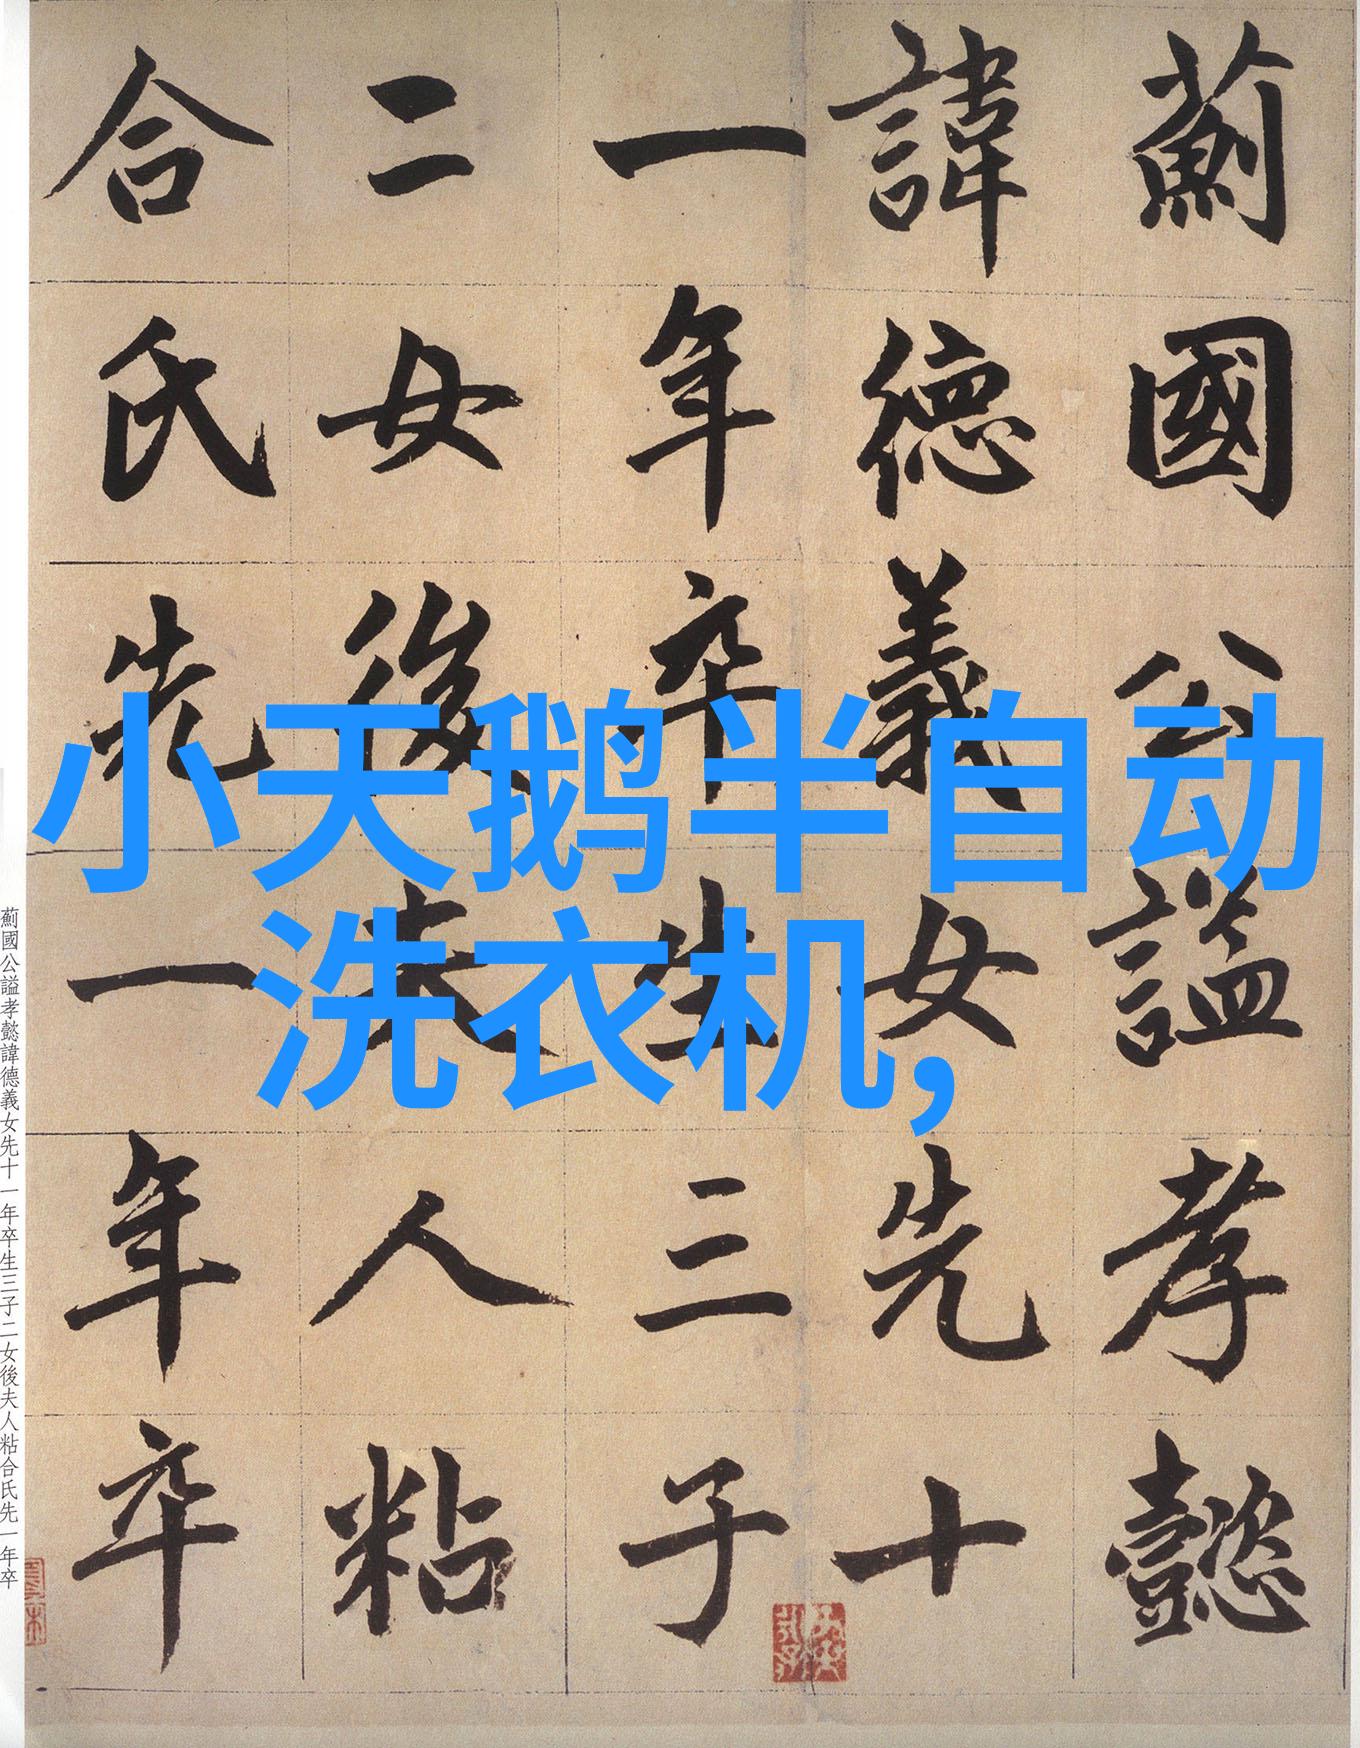 薊國公謚孝懿
諱德義女先十
一年卒生三子
二女後夫人粘
合氏先一年卒
小天鹅半自动
洗衣机,
薊國公謚孝懿諱德義女先十一年卒生三子二女後夫人粘合氏先一年卒